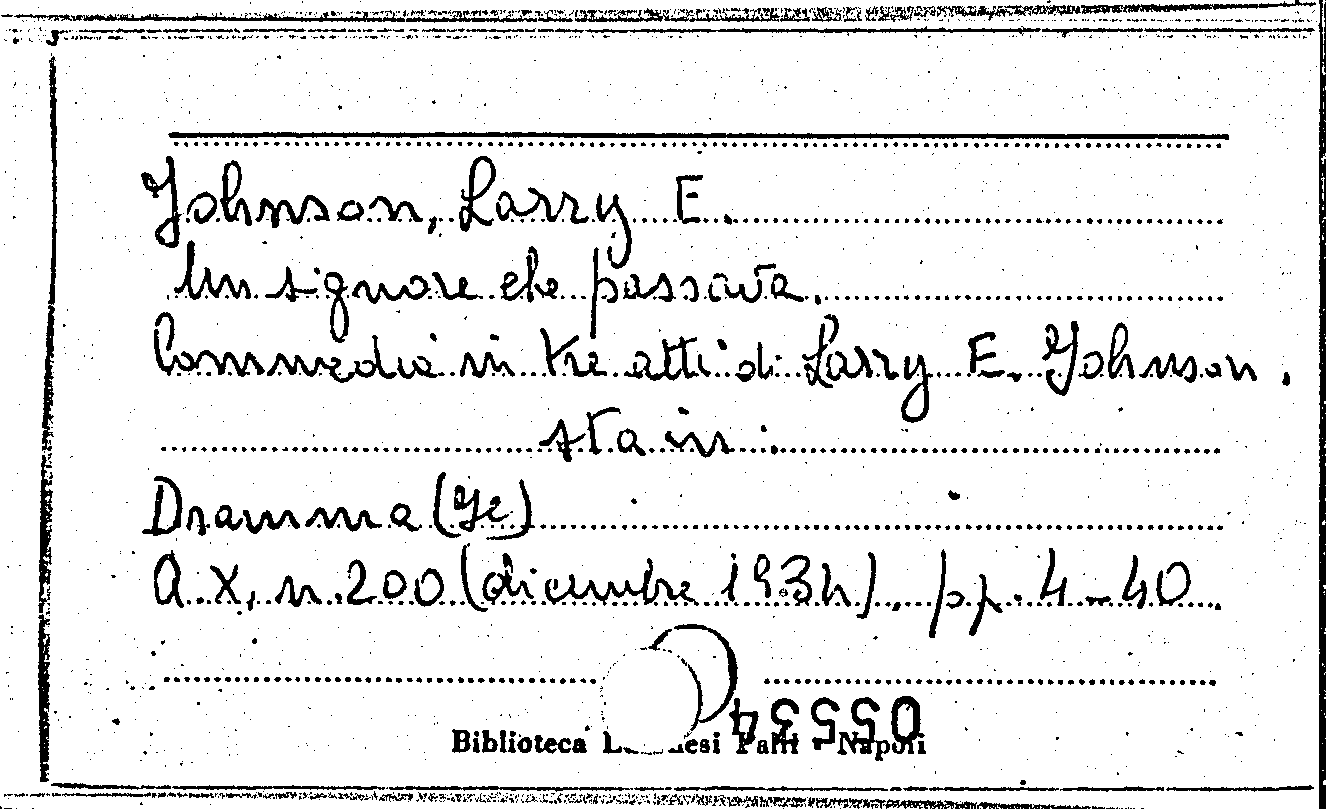 Johnson, Larry E.
Un signore che passava.
Commedia in tre atti di Larry E. Johnson.
sta in:
Dramma (Il)
A. X, n. 200 (dicembre 1934), pp. 4-40.
05534
Biblioteca Palli - Napoli